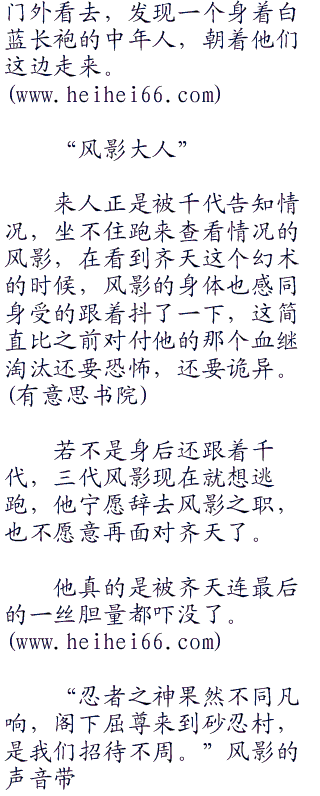 门外看去，发现一个身着白
蓝长袍的中年人，朝着他们
这边走来。
(www.heihei66.com)
“风影大人”
来人正是被千代告知情
况，坐不住跑来查看情况的
风影，在看到齐天这个幻术
的时候，风影的身体也感同
身受的跟着抖了一下，这简
直比之前对付他的那个血继
淘汰还要恐怖，还要诡异。
(有意思书院)
若不是身后还跟着千
代，三代风影现在就想逃
跑，他宁愿辞去风影之职，
也不愿意再面对齐天了。
他真的是被齐天连最后
的一丝胆量都吓没了。
(www.heihei66.com)
“忍者之神果然不同凡
响，阁下屈尊来到砂忍村，
是我们招待不周。”风影的
声音带